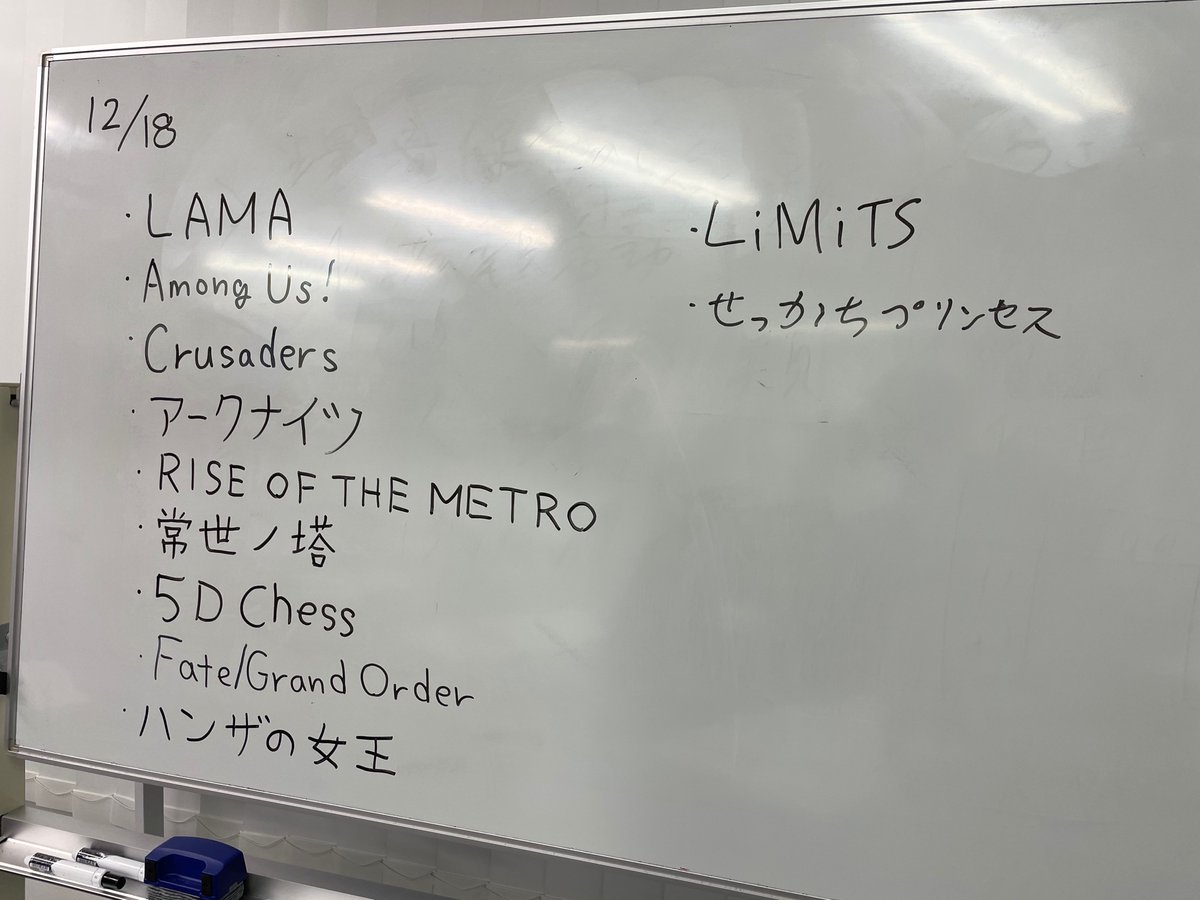 12/18
・LAMA
・Among Us!
・Crusaders
・アークナイツ
・RISE OF THE METRO
・常世ノ塔
・5D Chess
・Fate/Grand Order
・ハンザの女王
・LiMiTS
・せっかちプリンセス